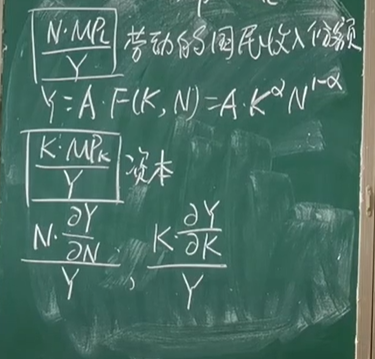 N·MP_L / Y 劳动的国民收入份额
Y=A·F(K,N)=A·K^α N^(1-α)
K·MP_K / Y 资本
N·∂Y/∂N / Y , K·∂Y/∂K / Y